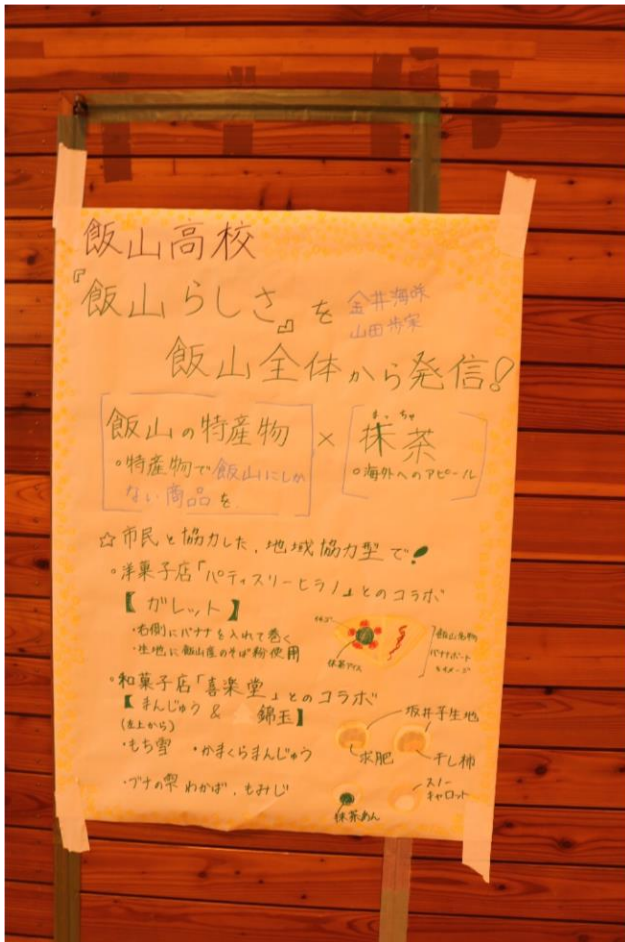 飯山高校
『飯山らしさ』を
金井海咲
山田歩実
飯山全体から発信!
飯山の特産物
。特産物で飯山にしか
ない商品を
×
まっちゃ
抹茶
。海外へのアピール
☆市民と協力した、地域協力型で!
。洋菓子店「パティスリーヒラノ」とのコラボ
【ガレット】
・右側にバナナを入れて巻く
・生地に飯山産のそば粉使用
抹茶アイス
飯山名物
バナナボート
をイメージ
。和菓子店「喜楽堂」とのコラボ
【まんじゅう & 錦玉】
(左上から)
・もち雪 ・かまくらまんじゅう
・ブナの雫 わかば、もみじ
坂井芋生地
求肥
干し柿
スノー
キャロット
抹茶あん